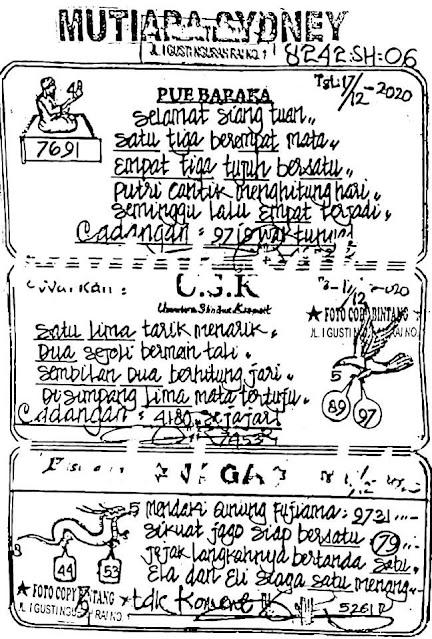 MUTIARA SYDNEY
JL. I GUSTI NGURAH RAI NO. 1
8242 SH:06
Tgl: 17/12-2020
48
7691
PUE BARAKA
Selamat siang tuan,,
Satu tiga berempat mata,,
Empat tiga tujuh bersatu,,
Putri cantik menghitung hari,,
Seminggu lalu empat terjadi,,
Cadangan =
12
C.S.K
★ FOTO COPY BINTANG ★
JL. I GUSTI NGURAH RAI NO.
Satu lima tarik menarik,,
Dua sejoli bermain tali.
Sembilan Dua berhitung jari,,
Di simpang Lima mata tertuju,,
Cadangan = 4180 sejajar!
7453
5
89
97
NAGA
5 mendaki Gunung Fujiama: 9731
Sikuat jago siap bersatu 79
Jejak langkahnya bertanda satu,
Ela dan Eli siaga satu menang
tdk Koment
5261
8
44
53
★ FOTO COPY BINTANG ★
JL. I GUSTI NGURAH RAI NO. 1